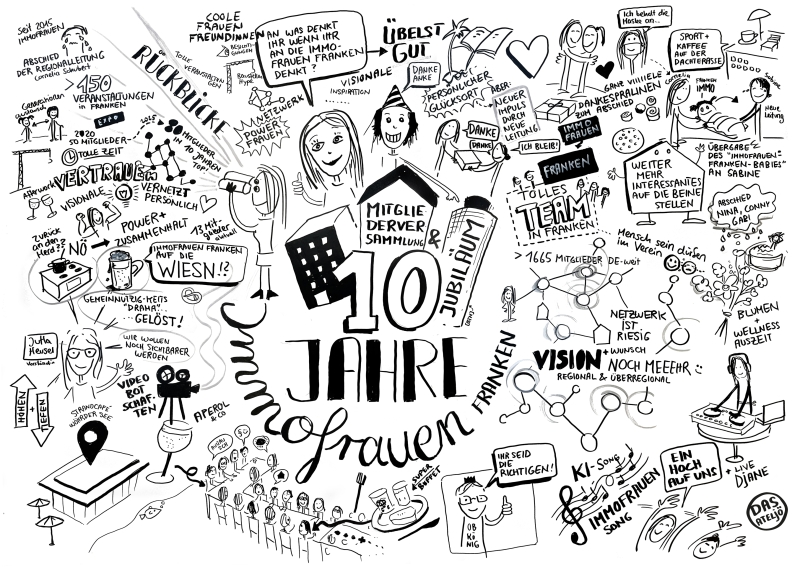 SEIT 2015
IMMOFRAUEN
ABSCHIED
DER REGIONALLEITUNG
Cornelia Schubert
150
VERANSTALTUNGEN
IN FRANKEN
EXPO
2020
50 MITGLIEDER
TOLLE ZEIT
RÜCKBLICKE
TOLLE
VERANSTAL-
TUNGEN
COOLE
FRAUEN
FREUNDINNEN
BESICHTI-
GUNGEN
2025
MITGLIEDER
IN 10 JAHREN
TOP!
NETZWERK
POWER-
FRAUEN
VERTRAUEN
Afterwork
VISIONALE
VERNETZT
PERSÖNLICH
POWER+
ZUSAMMENHALT
ZURÜCK
an den
Herd??
NÖ
IMMOFRAUEN FRANKEN
AUF DIE
WIESN!?
GEMEINNÜTZIG-KEITS
"DRAMA"...
...GELÖST!
Jutta
Heusel
WIR WOLLEN
NOCH SICHTBARER
WERDEN
HÖHEN
+
TIEFEN
VIDEO
BOT
SCHAF-
TEN
STRANDCAFÉ
WÖHRDER SEE
APEROL
& CO
AN WAS DENKT
IHR WENN IHR
AN DIE IMMO-
FRAUEN FRANKEN
DENKT?
VISIONALE
INSPIRATION
ÜBELST
GUT
DANKE
ANKE
PERSÖNLICHER
GLÜCKSORT
ABER:
NEUER
IMPULS
DURCH
NEUE
LEITUNG!
DANKE
DANKE
ICH BLEIB!
IMMO
FRAUEN
FRANKEN
GANZ VIIIIELE
DANKESPRALINEN
ZUM
ABSCHIED
Ich behalt die
Maske an...
SPORT+
KAFFEE
AUF DER
DACHTERASSE
Cornelia
FRANKEN
IMMO
Sabine
Neue
Leitung
ÜBERGABE
DES "IMMOFRAUEN-
FRANKEN-BABIES"
AN SABINE
WEITER
MEHR
INTERESSANTES
AUF DIE BEINE
STELLEN
TOLLES
TEAM
IN FRANKEN
ABSCHIED
NINA, CONNY
GABI
Mensch sein dürfen
im Verein
> 1665 MITGLIEDER DE-weit
NETZWERK
IST
RIESIG
BLUMEN
+
WELLNESS
AUSZEIT
VISION
+ WUNSCH
NOCH MEEEHR
REGIONAL & ÜBERREGIONAL
MITGLIE
DERVER
SAMMLUNG
&
JUBILÄUM
10
JAHRE
Immofrauen
FRANKEN
SUPER
BUFFET
IHR SEID
DIE
RICHTIGEN!
OB
KÖNIG
KI-SONG
IMMOFRAUEN
SONG
EIN
HOCH
AUF UNS
+ LIVE
DJANE
DAS
ATELJÖ